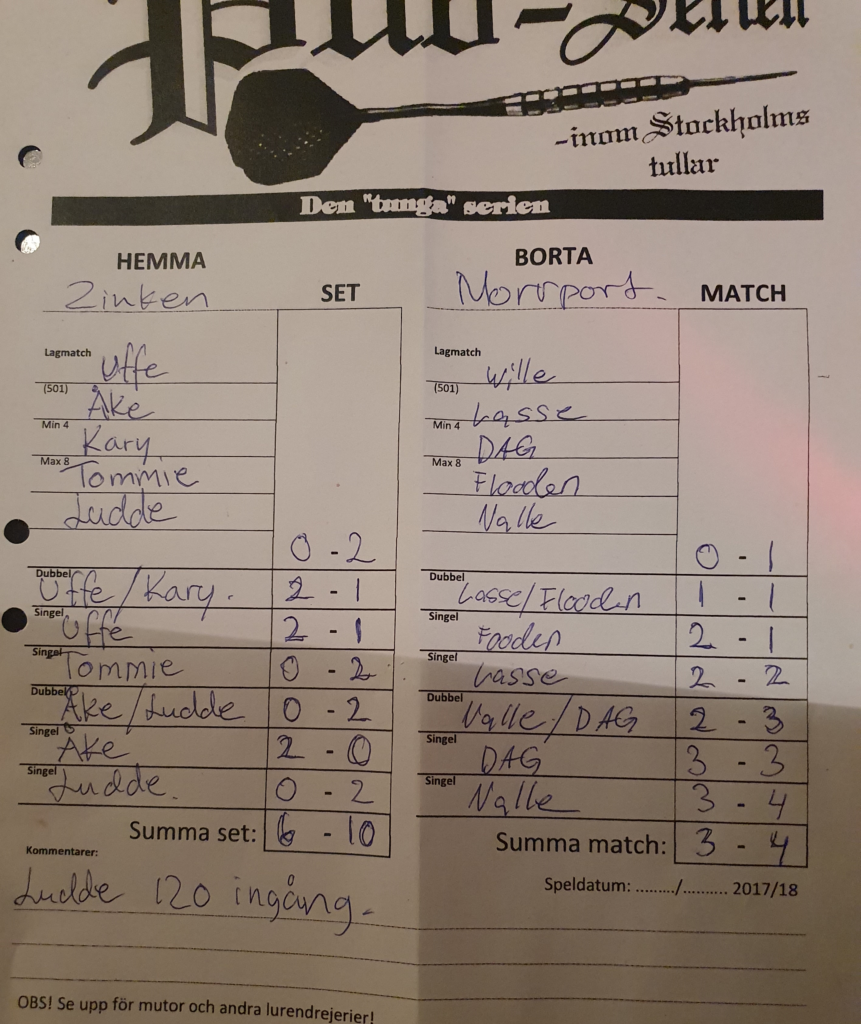 Pub-Serien
-inom Stockholms
tullar
Den "tunga" serien
HEMMA BORTA
Zinken SET Norrport. MATCH
Lagmatch Uffe Lagmatch Wille
(501) Åke (501) Lasse
Min 4 Kary Min 4 DAG
Max 8 Tommie Max 8 Flooden
Ludde Nalle
0 - 2 0 - 1
Dubbel Uffe/Kary. 2 - 1 Dubbel Lasse/Flooden 1 - 1
Singel Uffe 2 - 1 Singel Fooden 2 - 1
Singel Tommie 0 - 2 Singel Lasse 2 - 2
Dubbel Åke/Ludde 0 - 2 Dubbel Nalle/DAG 2 - 3
Singel Åke 2 - 0 Singel DAG 3 - 3
Singel Ludde. 0 - 2 Singel Nalle 3 - 4
Summa set: 6 - 10 Summa match: 3 - 4
Kommentarer: Speldatum: ........./.......... 2017/18
Ludde 120 ingång.
OBS! Se upp för mutor och andra lurendrejerier!